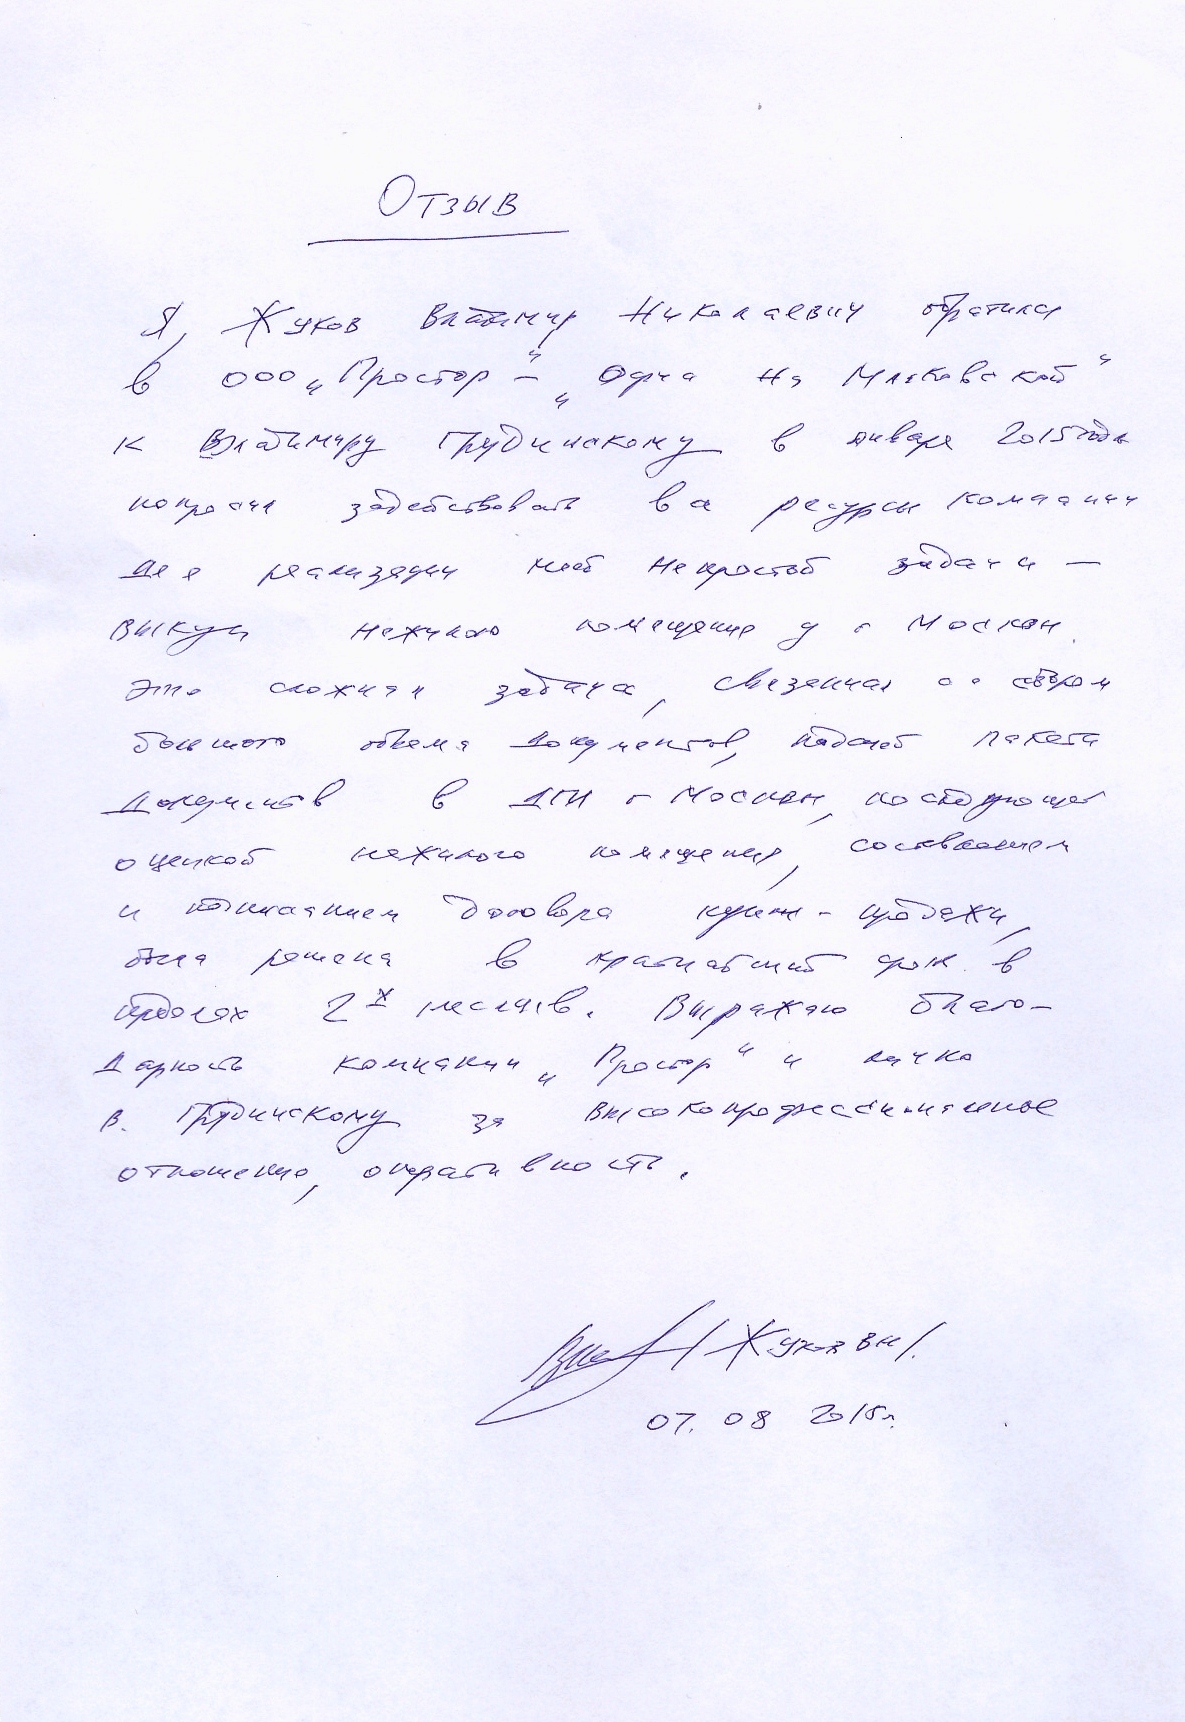 Отзыв
Я, Жуков Владимир Николаевич обратился
в ООО „Простор –" „Одна на Маяковской"
к Владимиру Грудинскому в январе 2015 года
попросил задействовать все ресурсы компании
для реализации моей непростой задачи –
выкупа нежилого помещения у г Москвы.
Это сложная задача, связанная со сбором
большого объема документов, подачей пакета
документов в ДГИ г Москвы, последующей
оценкой нежилого помещения, составлением
и подписанием договора купли-продажи,
была решена в кратчайший срок в
пределах 2х месяцев. Выражаю благо-
дарность компании „Простор" и лично
В. Грудинскому за высокопрофессиональное
отношение, оперативность.
/Жуков ВН/.
07. 08 2015г.